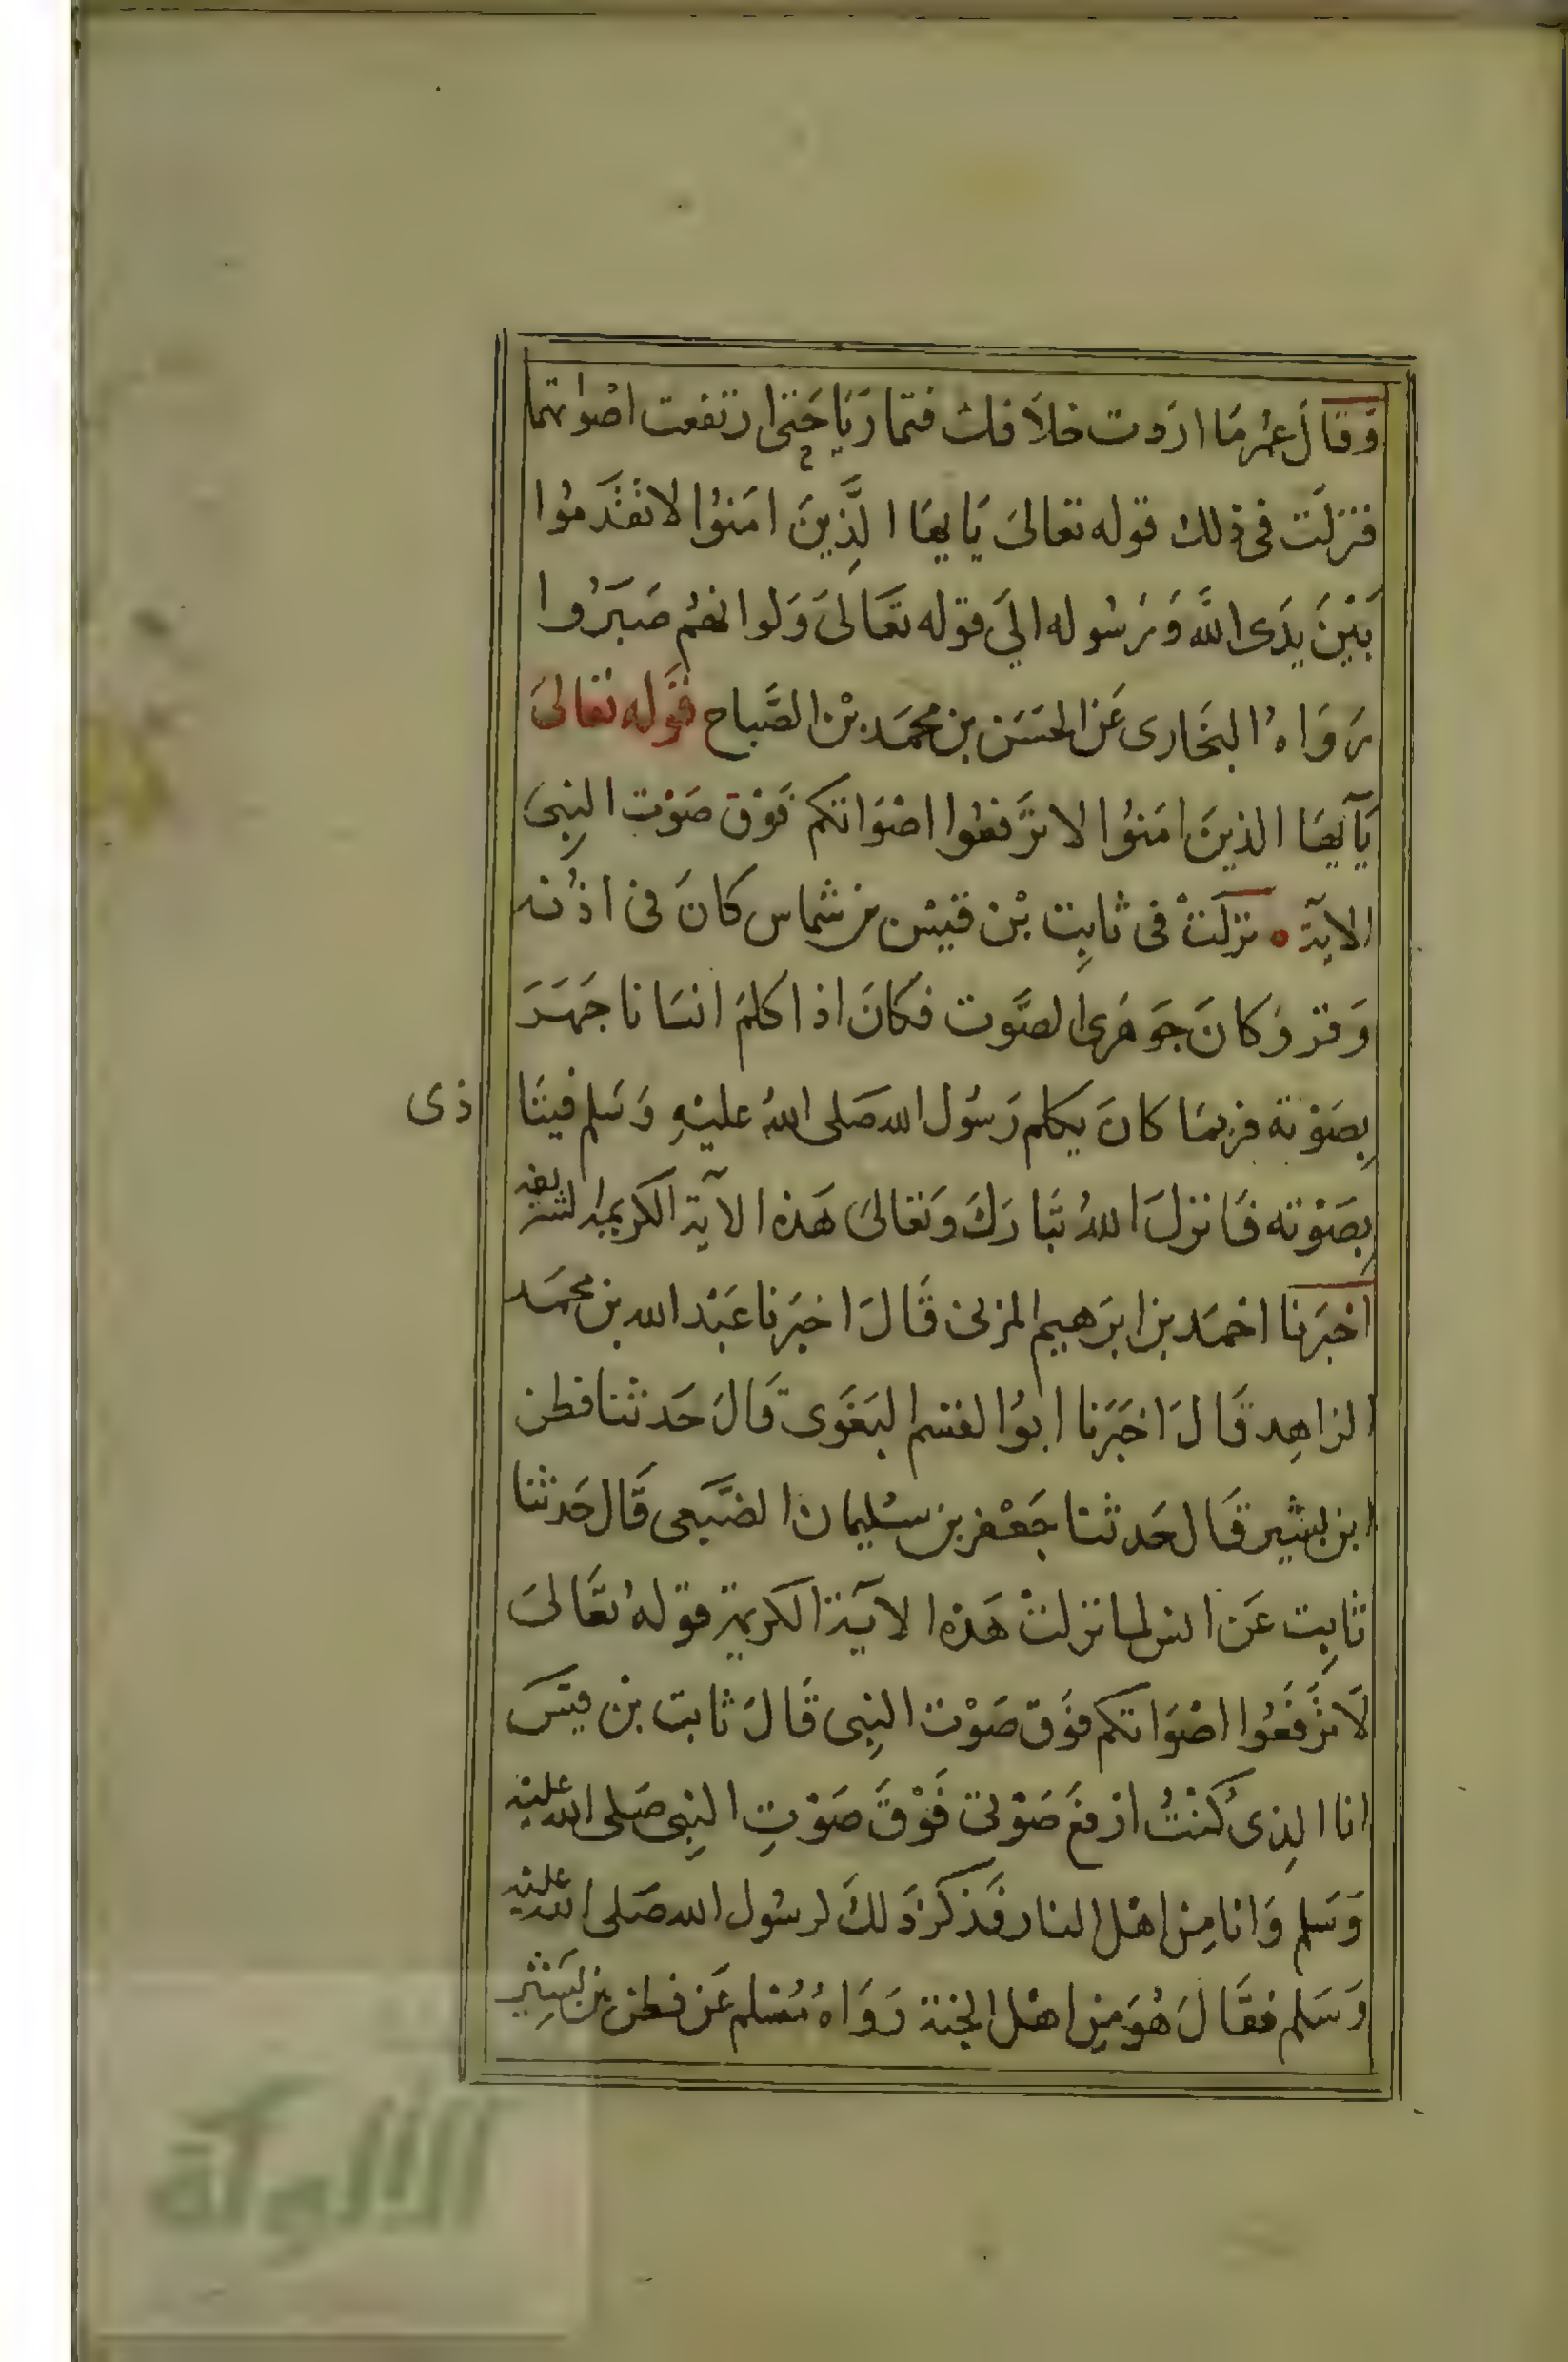 وَقَالَ عمر مَا اردت خلاَفك فتماريَا حَتى ارتفعت اصواتهما
فنزلَت فى ذلك قوله تعالىَ يَايها الَّذِينَ امَنوُا لا تقَدمُوا
بَيْنَ يدَى اللَّه وَرَسُوله الىَ قوله تعَالىَ وَلو انهُم صَبَرُوا
رَوَاهُ البخَارى عَن الحسَن بن محمَد بْن الصَّباح قوله تعالىَ
يَآيهَا الذينَ امَنوُا لا ترَفعُوا اصْوَاتكم فَوْق صَوْت النِبىَ
الاية نزلَتْ فى ثابِت بْن قيْس بن شماس كانَ فى اذُنه
وَقر وَكانَ جَوهَرى الصَّوت فكانَ اذا كلمَ انسَانا جَهَرَ
بِصَوْته فربمَا كانَ يكلم رَسُول الله صَلى اللهُ عليْهِ وَسَلم فيتَا
ذى
بِصَوْته فَانزلَ اللهُ تبَاركَ وَتعَالىَ هَذه الآية الكريمة الشريفه
اخبَرنا احْمَد بن ابرَهيم المزنى قَالَ اخبَرنا عَبْد الله بن محمَد
الزاهِد قَالَ اخبَرَنا ابوُ القسم البغَوى قَالَ حَدثنا قطن
ابن بشير قَال حَدثنا جَعْفر بن سُليمان الضبَعى قَال حَدثنا
ثابِت عَن انس لما نزلتْ هَذه الآية الكريمة قوله تعَالىَ
لاَ ترَفَعُوا اصْوَاتكم فوَق صَوْت النِبى قَالَ ثابت بن قيَس
انا الذِى كُنتُ ارفع صَوْتى فَوْقَ صَوْتِ النِبِى صَلى الله عليْه
وَسَلم وَانا مِن اهْل النار فَذكرَ ذَلكَ لرسُول الله صَلى الله عليْه
وَسَلم فقَالَ هُوَ مِن اهْل الجنة رَوَاهُ مُسْلم عَن قطن بن بَشِير
الألوكة